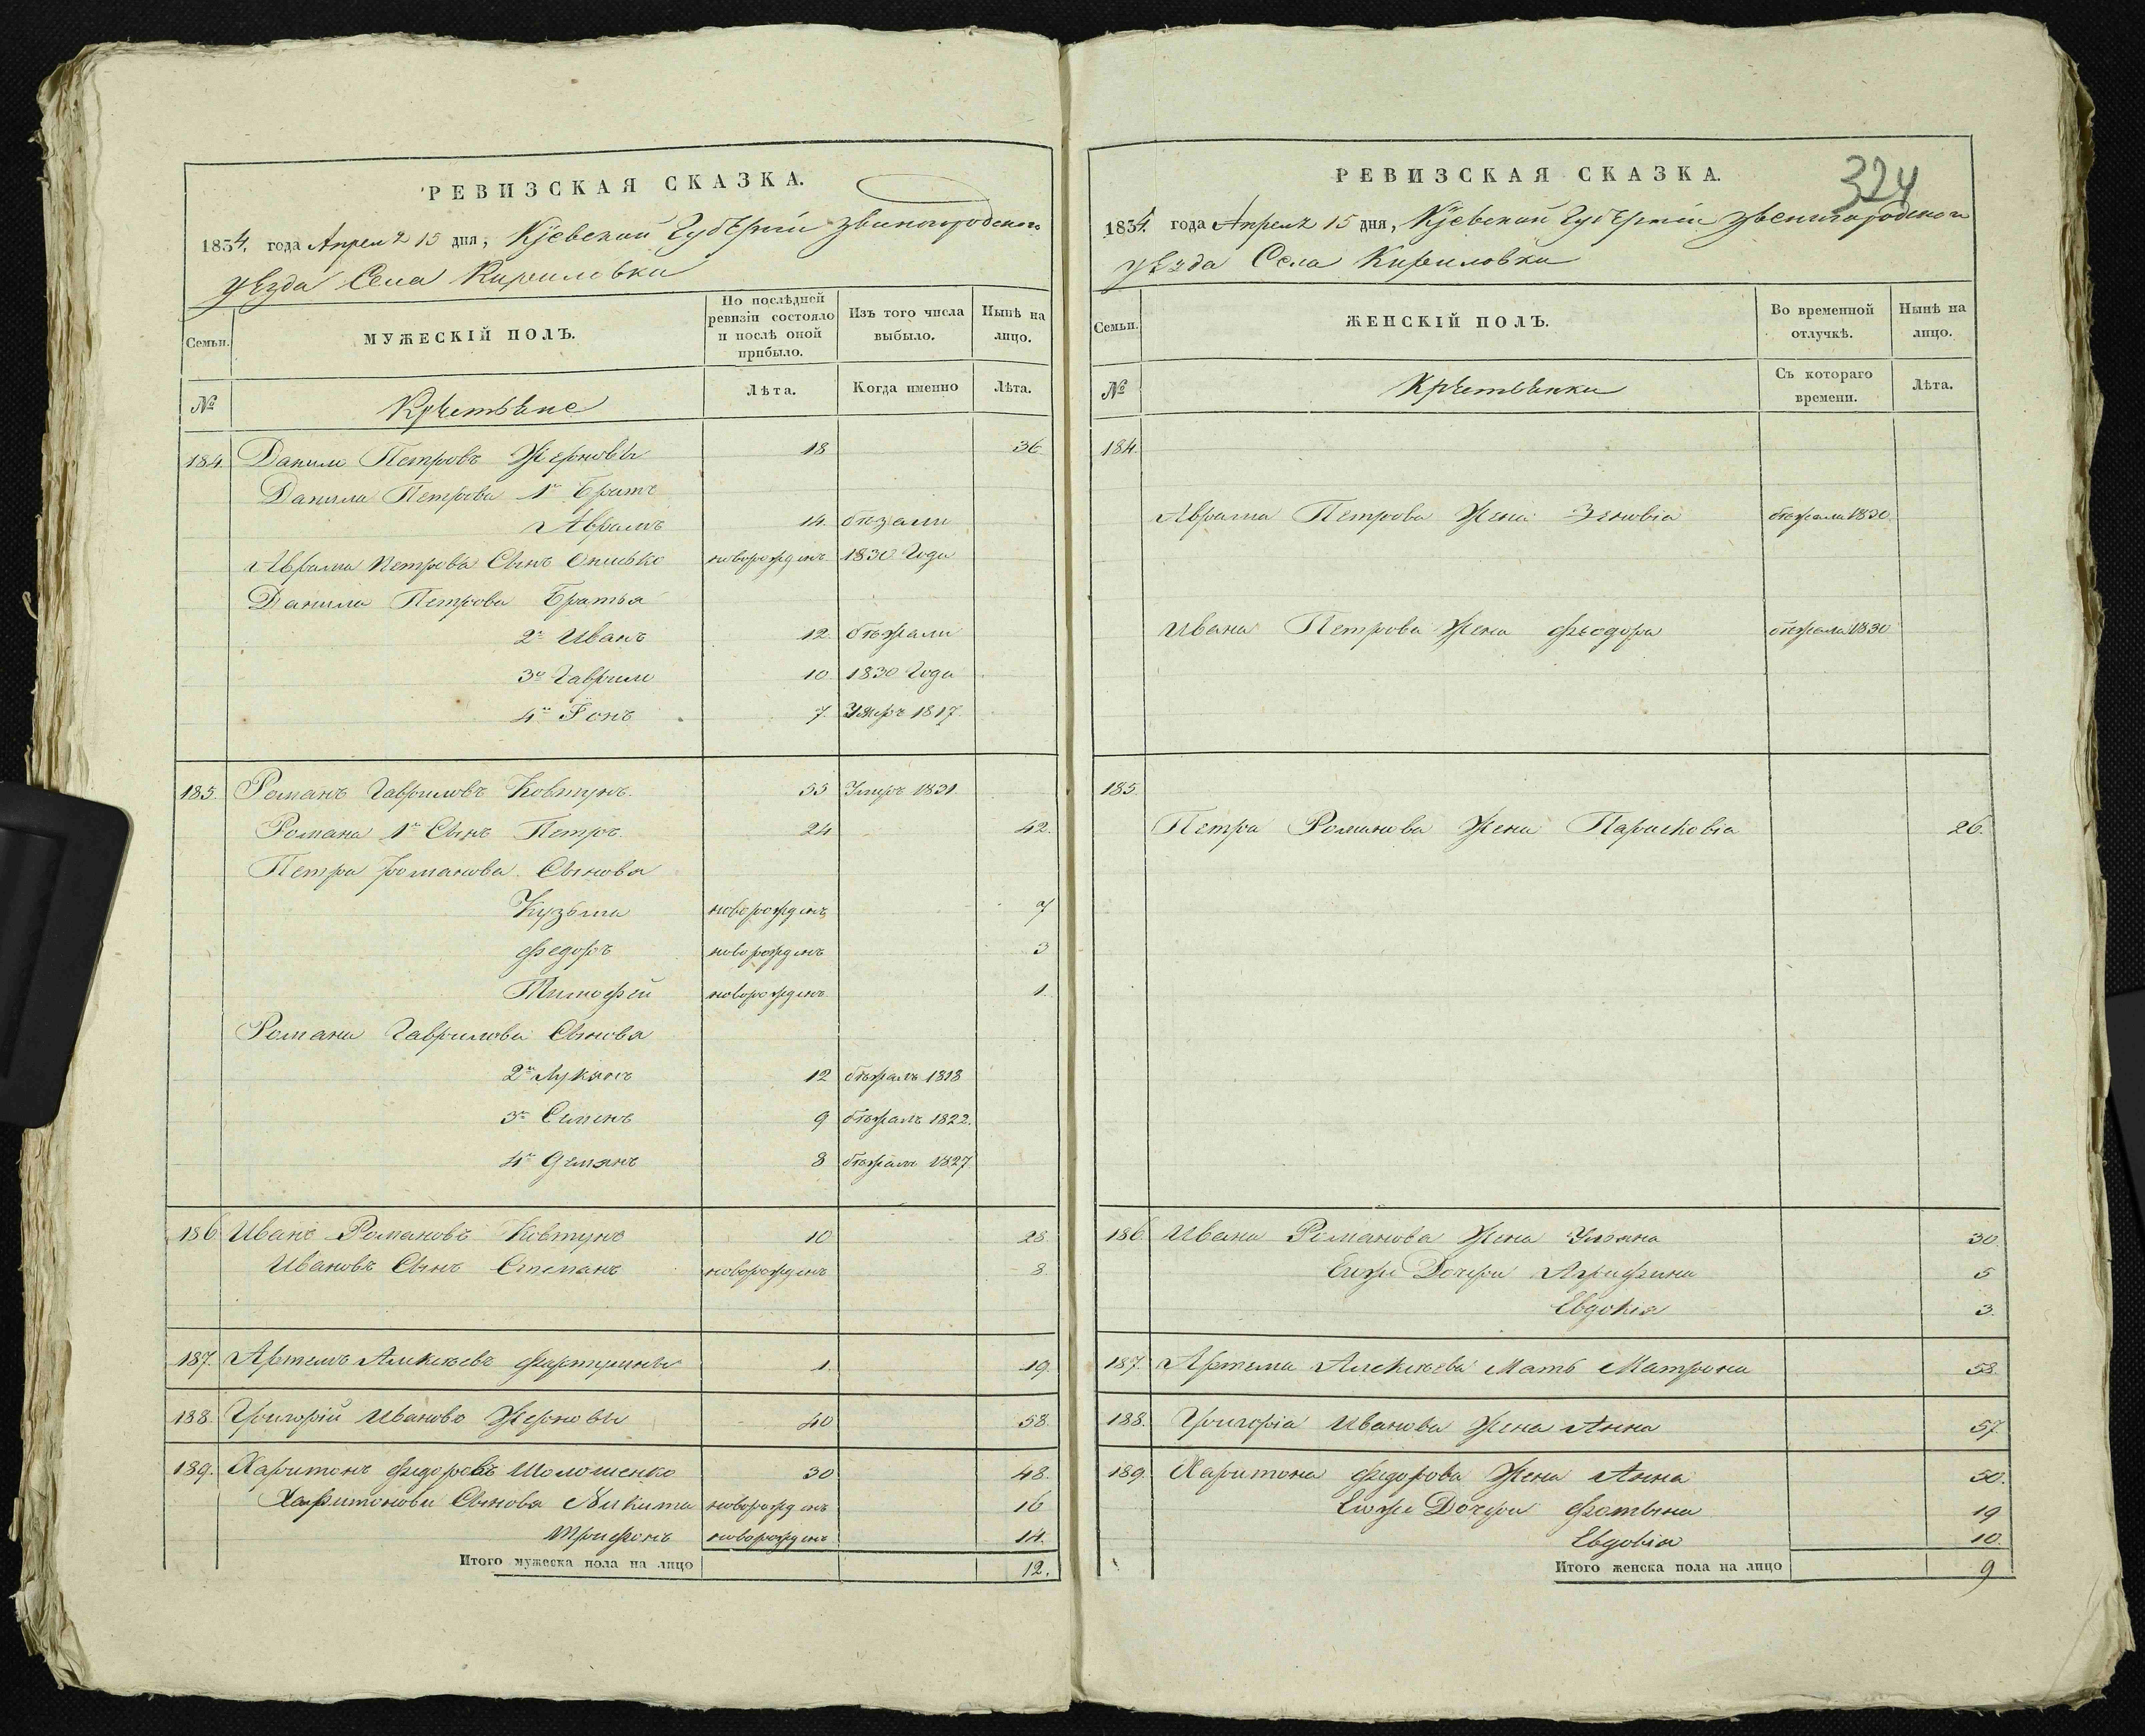 РЕВИЗСКАЯ СКАЗКА.
1834. года Апреля 15 дня, Кіевской Губерніи Звиногородского
уезда Села Кириловки
Семьи. МУЖЕСКІЙ ПОЛЪ. По послѣдней ревизіи состояло и послѣ оной прибыло. Изъ того числа выбыло. Нынѣ на лицо.
№ Крестьяне Лѣта. Когда именно Лѣта.
184. Данило Петровъ 18 36
Данила Петрова 1й Братъ
Аврамъ 14. бѣжали
Аврама Петрова Сынъ Онисько новорожденъ 1830 Года
Данила Петрова Братья
2й Иванъ 12. бѣжали
3й Гаврило 10 1830 Года
4й Іонъ 7. Умеръ 1817.
185. Романъ Гавриловъ Ковтунъ. 53 Умеръ 1831.
Романа 1й Сынъ Петръ 24 42.
Петра Романова Сыновья
Кузьма новорожденъ 7
Федоръ новорожденъ 3
Тимофей новорожденъ 1.
Романа Гаврилова Сыновья
2й Лукянъ 12 бѣжалъ 1818
3й Семенъ 9 бѣжалъ 1822.
4й Демянъ 8 бѣжалъ 1827
186 Иванъ Романовъ Ковтунъ 10 28.
Ивановъ Сынъ Степанъ новорожденъ 8
187. Артемъ Алексѣевъ 1. 19.
188. Григорій Ивановъ 40 58.
189. Харитонъ Федоровъ Шоломенко 30 48.
Харитоновы Сыновья Никита новорожденъ 16
Трифонъ новорожденъ 14.
Итого мужеска пола на лицо 12.
324
РЕВИЗСКАЯ СКАЗКА.
1834. года Апреля 15 дня, Кіевской Губерніи Звенигородского
уезда Села Кириловки
Семьи. ЖЕНСКІЙ ПОЛЪ. Во временной отлучкѣ. Нынѣ на лицо.
№ Крестьянки Съ котораго времени. Лѣта.
184.
Аврама Петрова Жена Зеновія бѣжала 1830.
Ивана Петрова Жена Феодора бѣжала 1830
185.
Петра Романова Жена Парасковія 26.
186 Ивана Романова Жена Ульяна 30.
Еиже Дочери Агрифина 5
Евдокія 3.
187. Артема Алексѣева Мать Матрона 58.
188. Григорія Иванова Жена Анна 57.
189. Харитона Федорова Жена Анна 50.
Еиже Дочери Фотына 19
Евдокія 10.
Итого женска пола на лицо 9